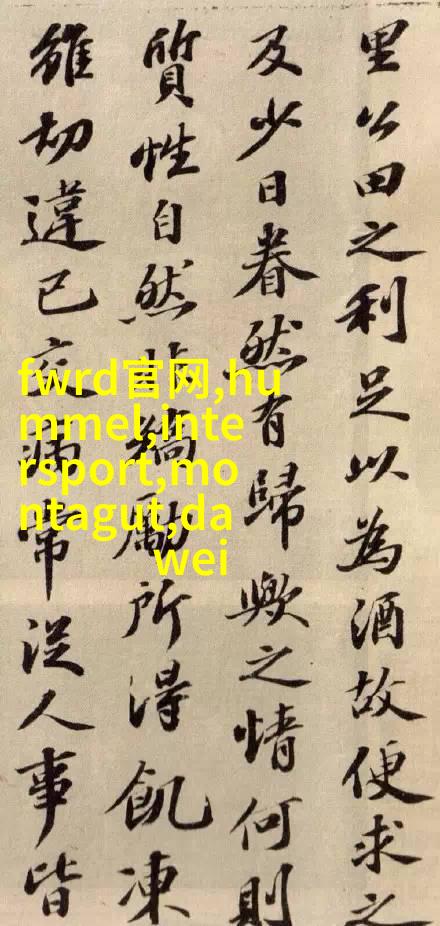 里公田之利足以為酒故便求之
及少日眷然有歸歟之情何則
質性自然非矯勵所得飢凍
雖切違已交病常從人事皆
fwrd官网,hu
mmel,inter
sport,mo
ntagut,da
wei